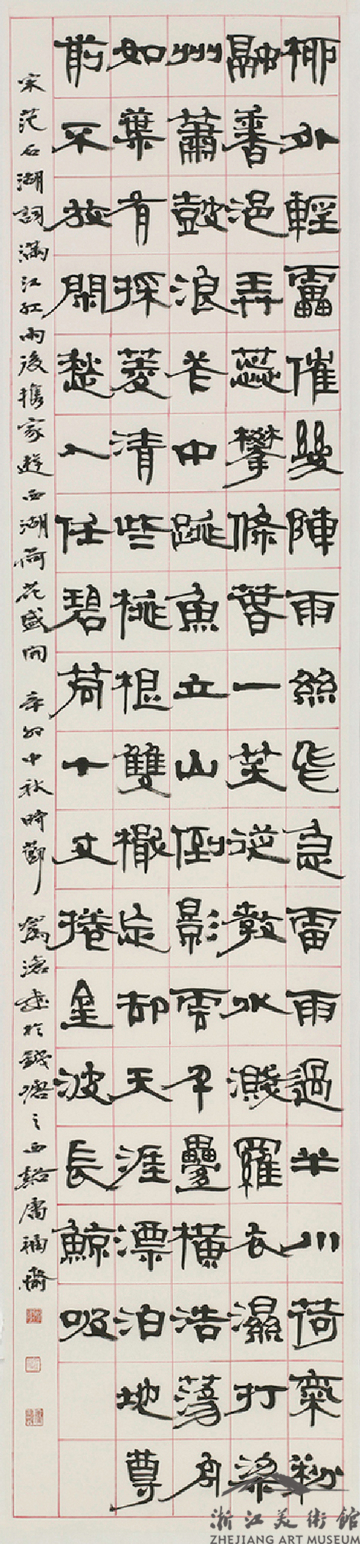 柳外輕靁催幾陣雨絲飛急雷雨過半川荷氣粉
融香浥弄蕊攀條春一笑從教水濺羅衣濕打梁
州蕭鼓浪花中跳魚立山倒影雲千疊橫浩蕩舟
如葉有採菱清些桃根雙檝忘却天涯漂泊地尊
前不放閑愁入任碧筒十丈捲金波長鯨吸
宋范石湖詞滿江紅雨後攜家遊西湖荷花盛開 辛卯中秋時節 於錢塘之西谿庸福齋
浙江美術館
ZHEJIANG ART MUSEUM